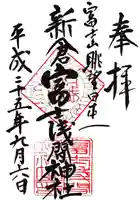 奉拝
富士山眺望日本一
新倉富士浅間神社
平成三十五年九月六日